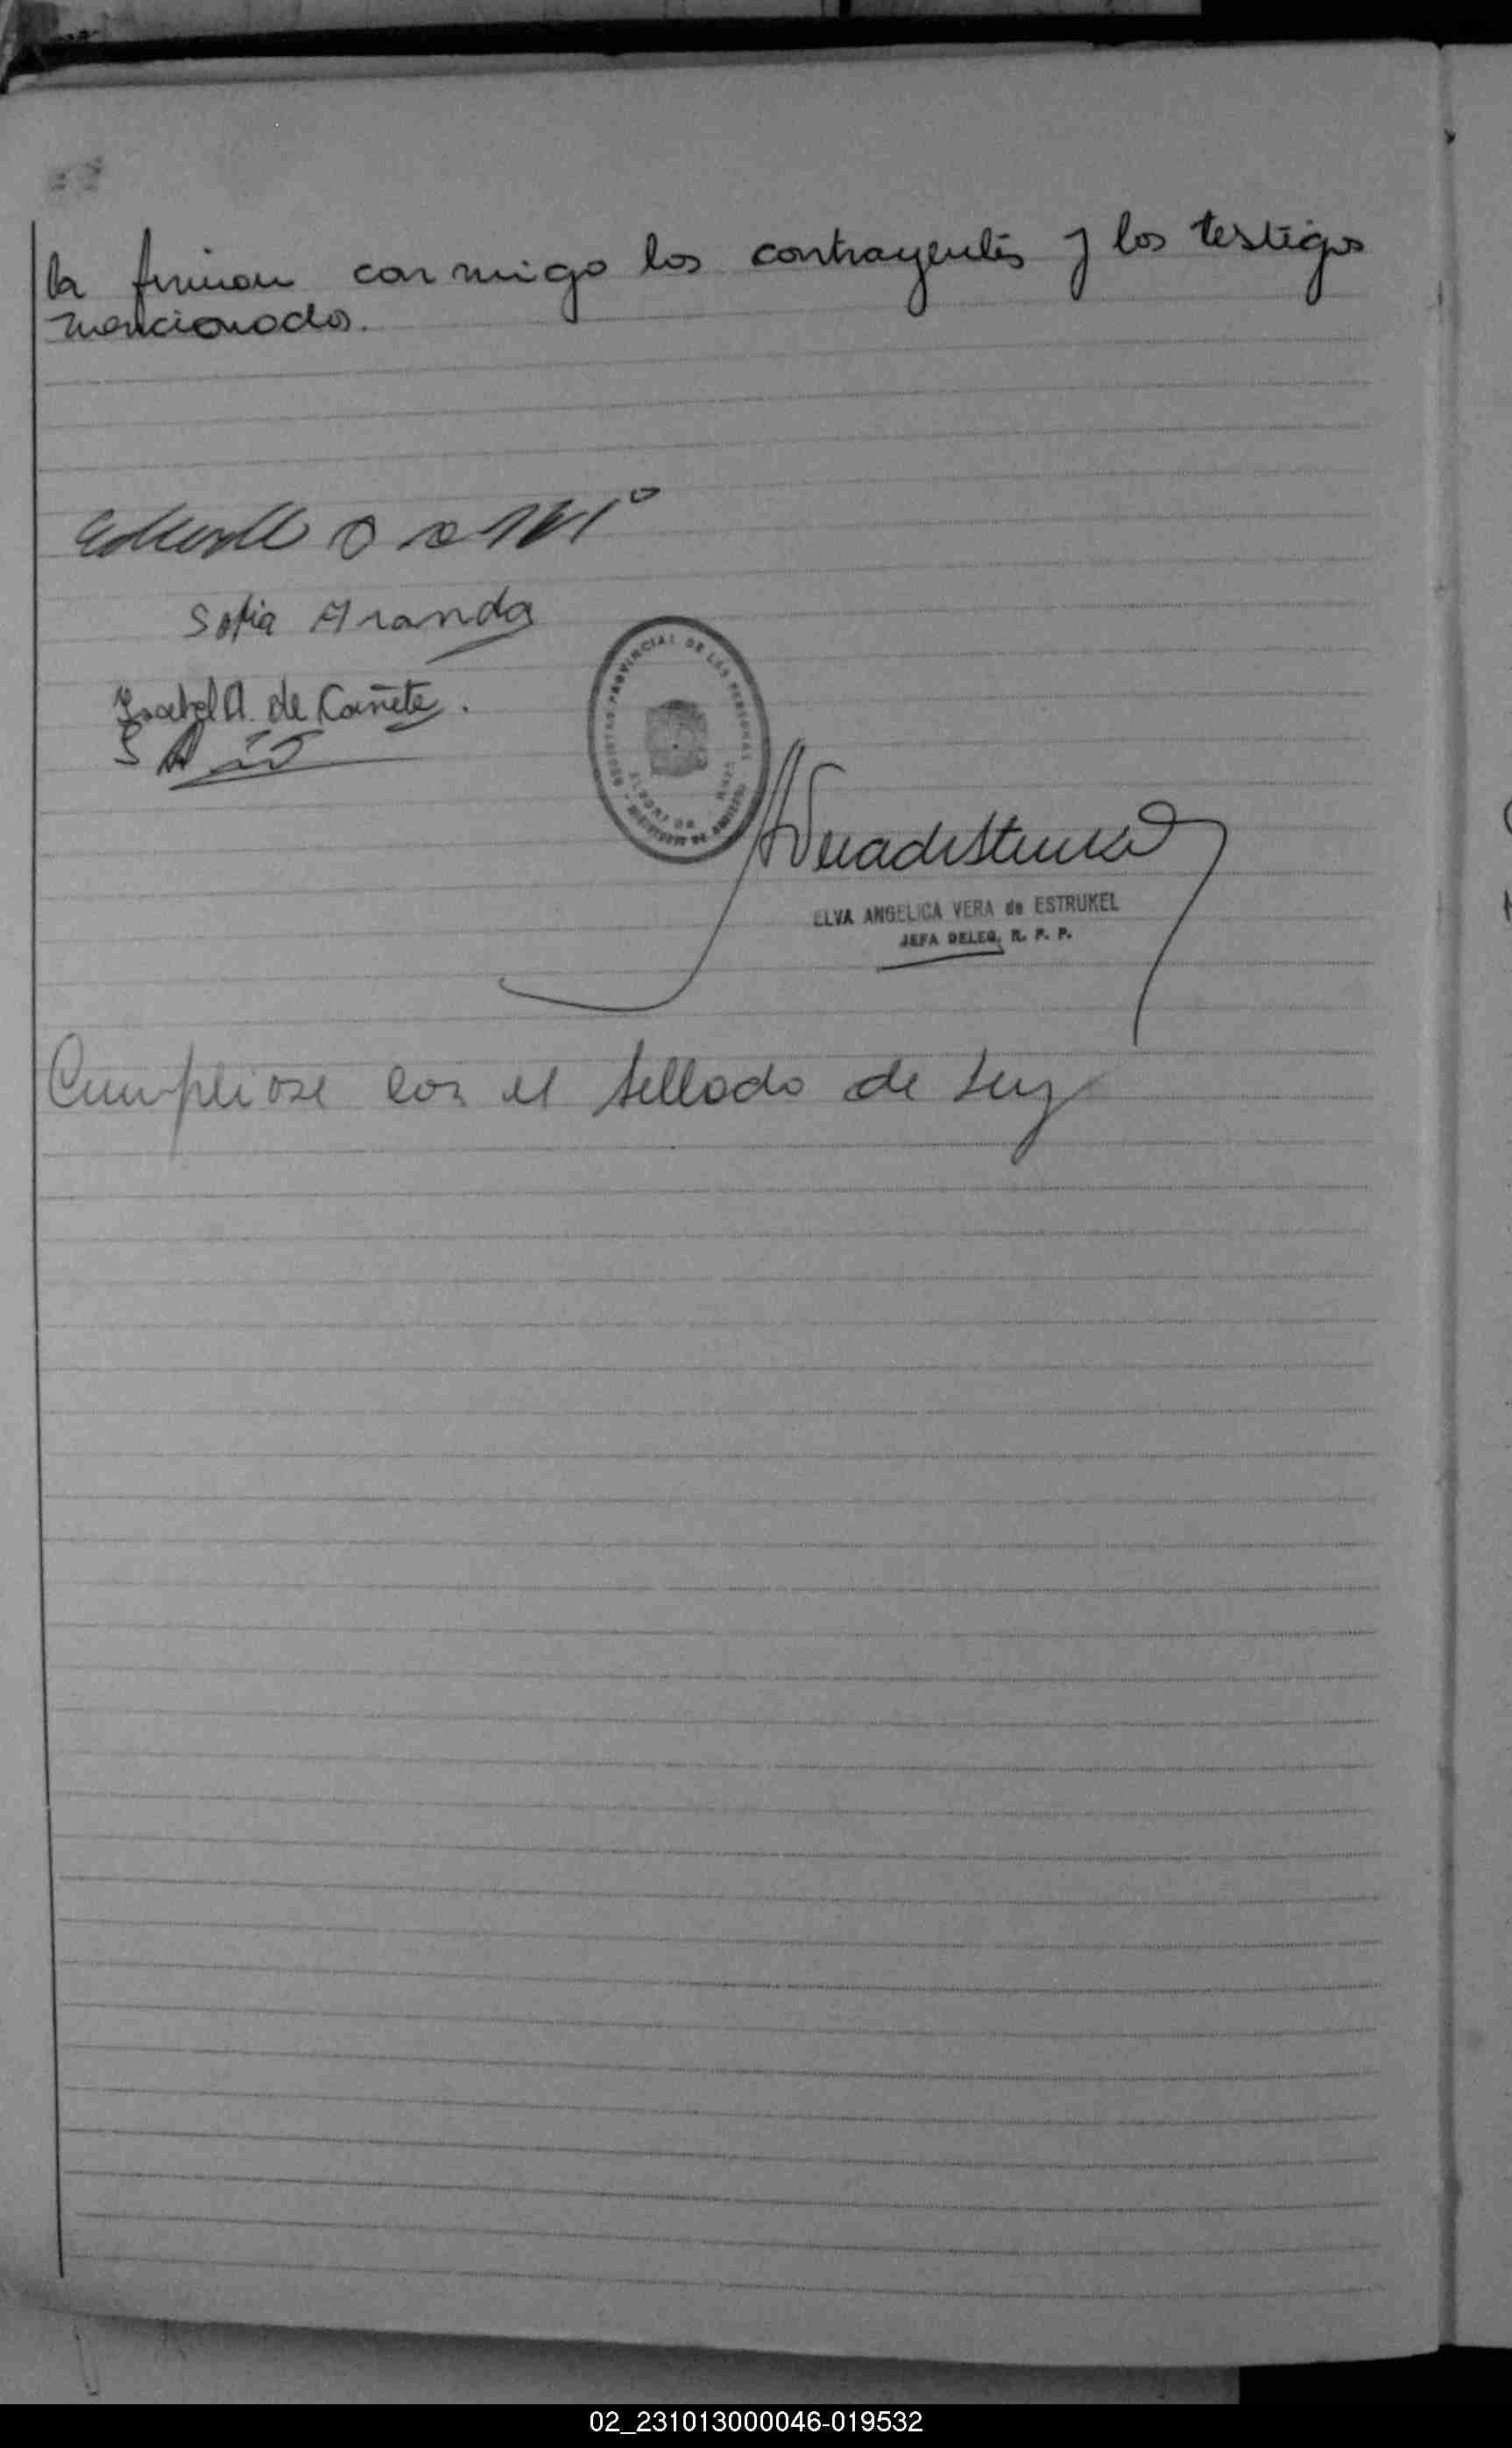 la firman conmigo los contrayentes y los testigos
mencionados.
Sofia Aranda
Ysabel A. de Cañete.
REGISTRO PROVINCIAL DE LAS PERSONAS
ELVA ANGELICA VERA de ESTRUKEL
JEFA DELEG. R. P. P.
Cumpliose con el sellado de Ley
02_231013000046-019532